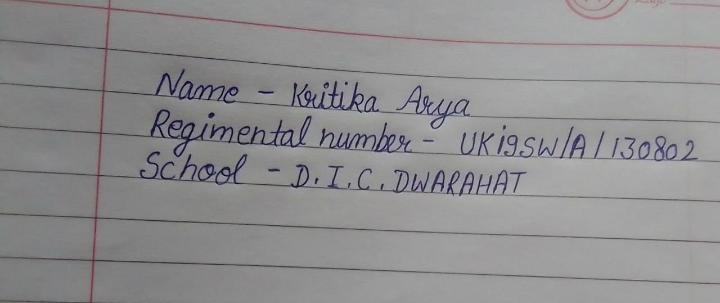 Name - Kritika Arya
Regimental number - UK19SW/A/130802
School - D.I.C. DWARAHAT